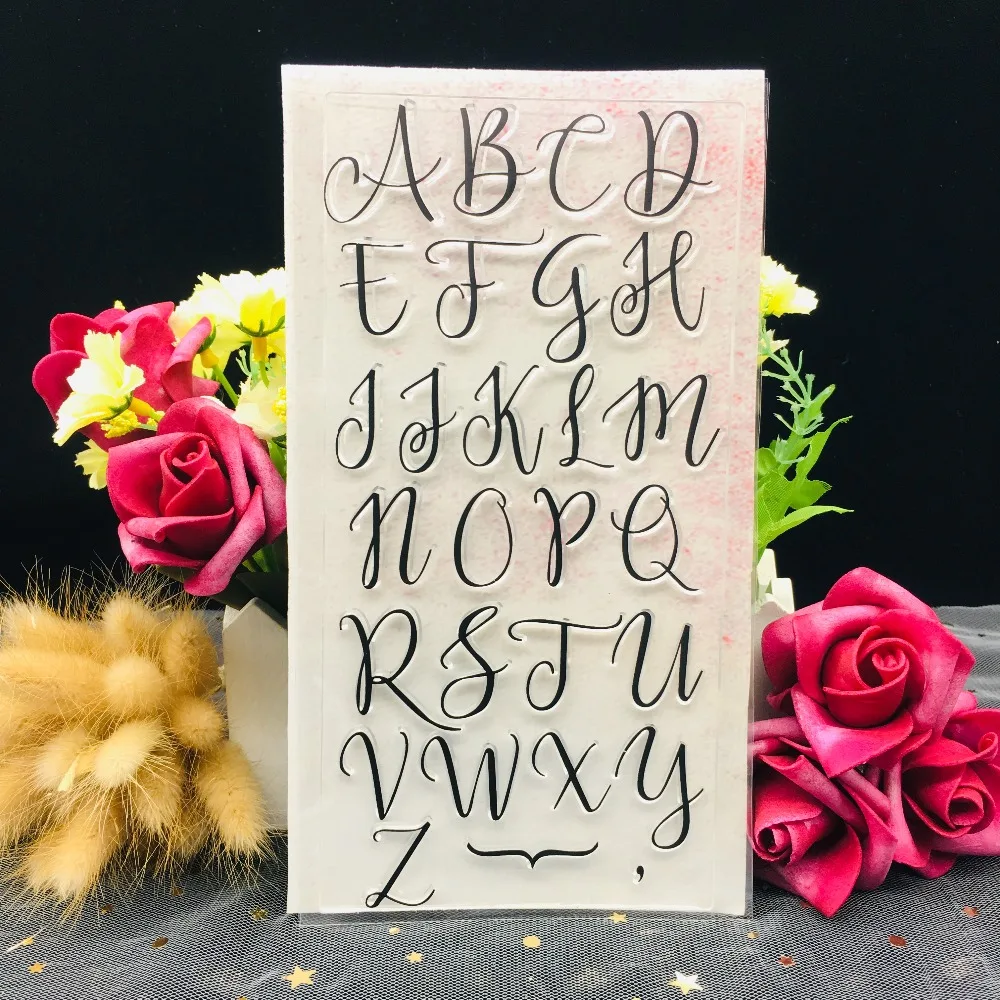 A B C D
E F G H
I J K L M
N O P Q
R S T U
V W X Y
Z ,